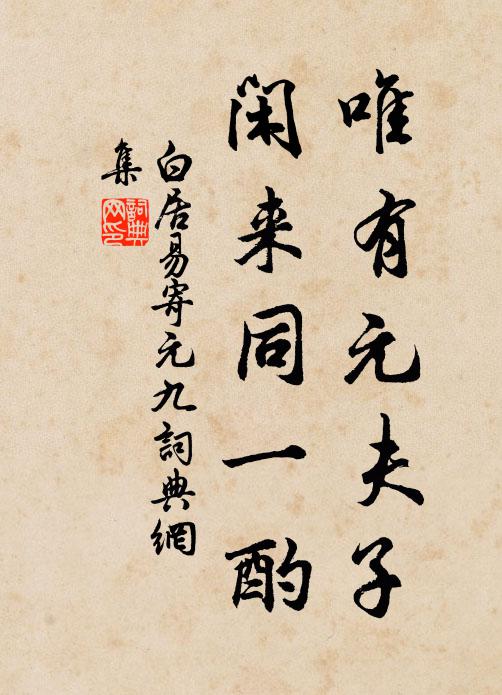 唯有元夫子
閑来同一酌
白居易寄元九詞典網
集
詞典網印